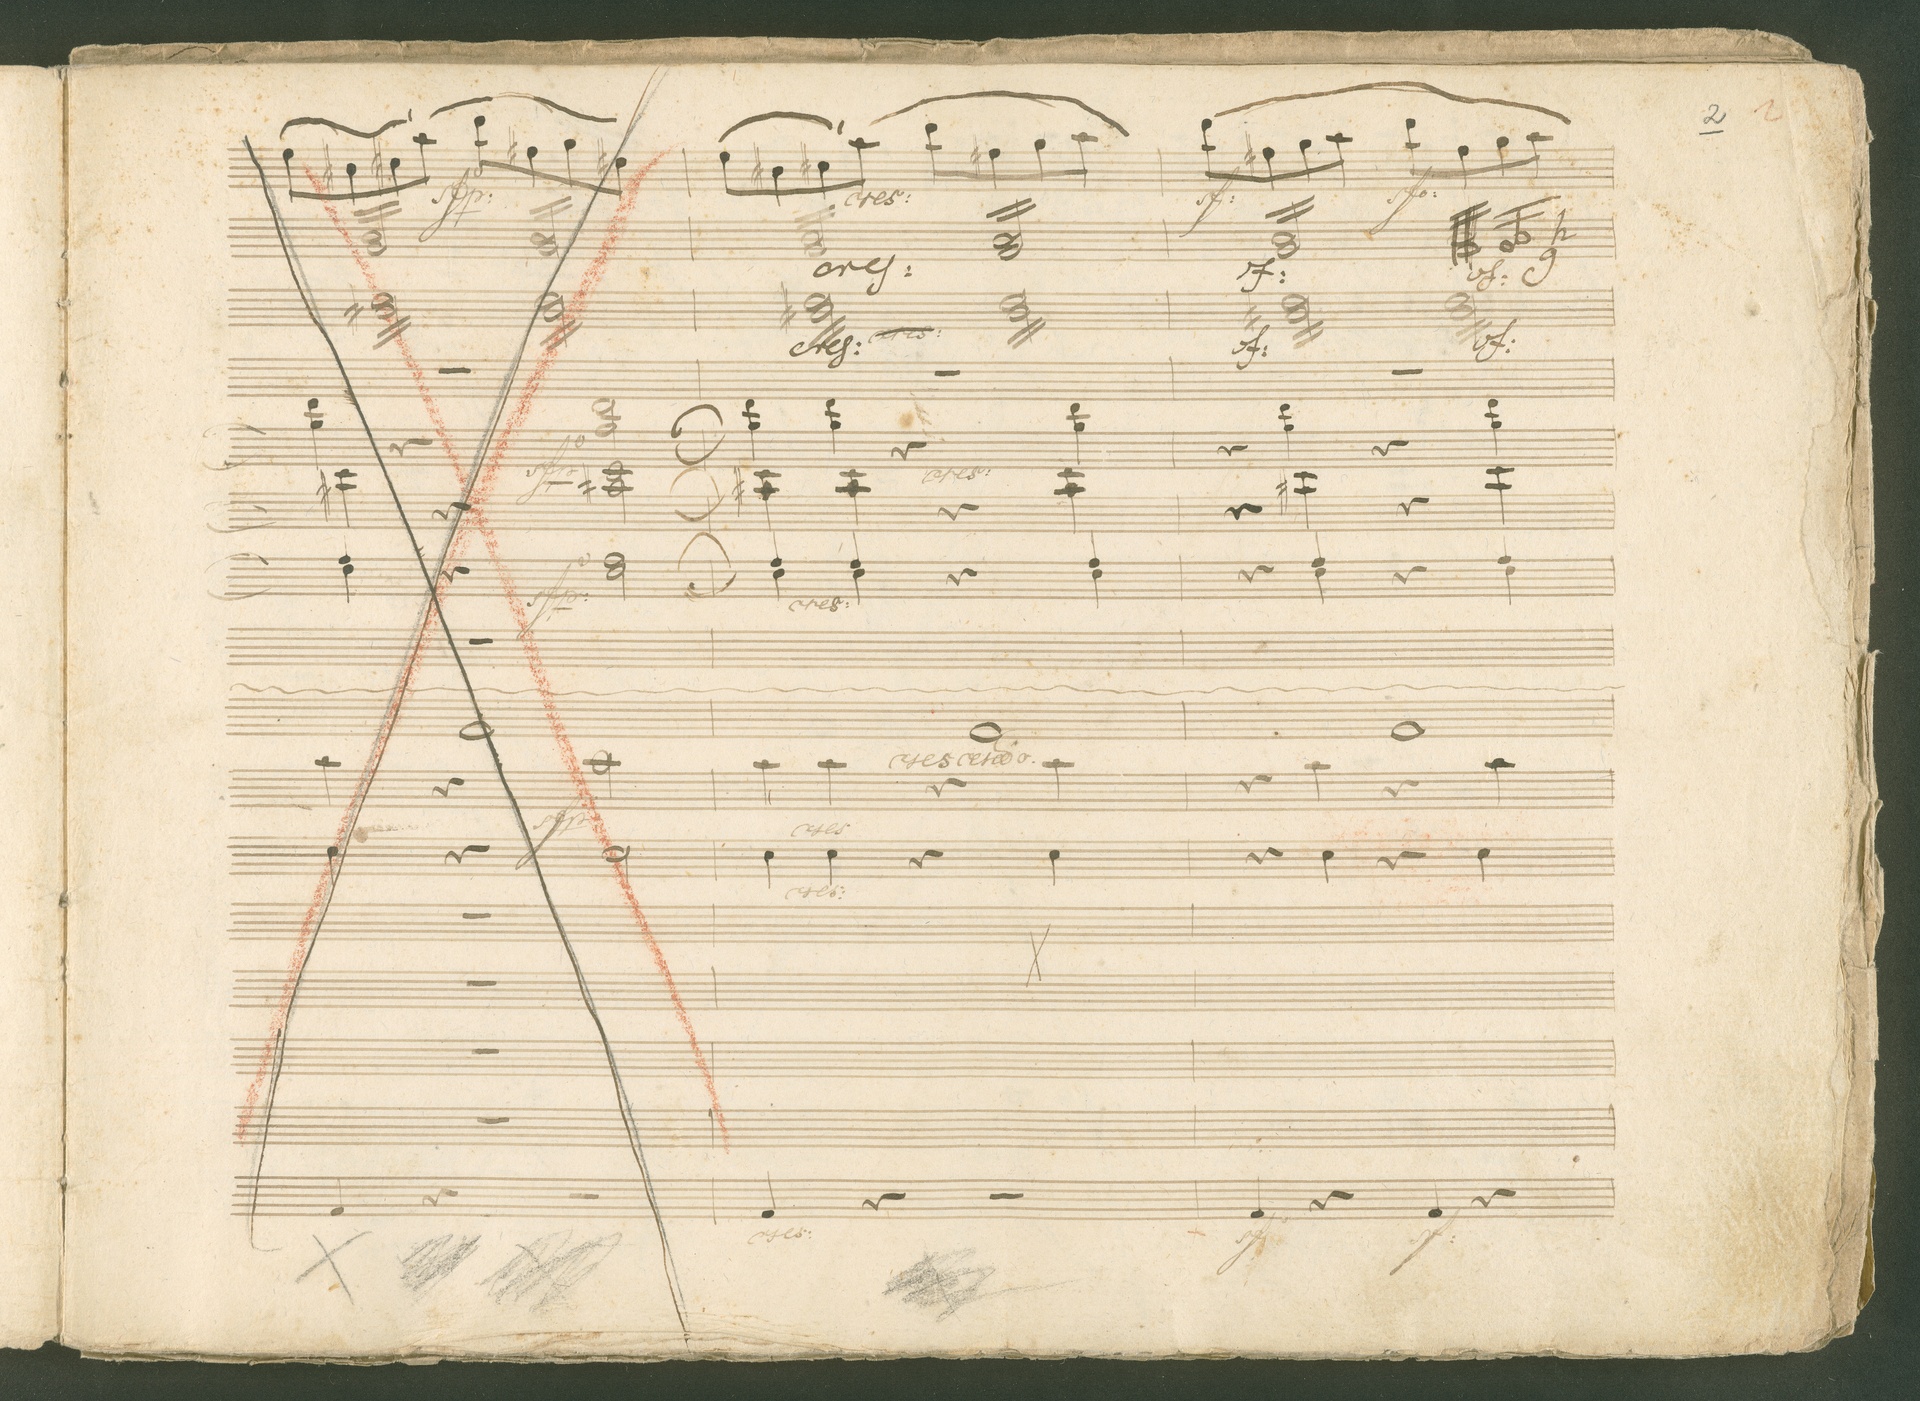 2 2
sfp: cres: sf: sfo:
cres: sf: sf: h
g
cres: cres: sf: sf:
sfp: cres:
sfp: cres:
crescendo.
sfp cres
cres:
cres: sf: sf: